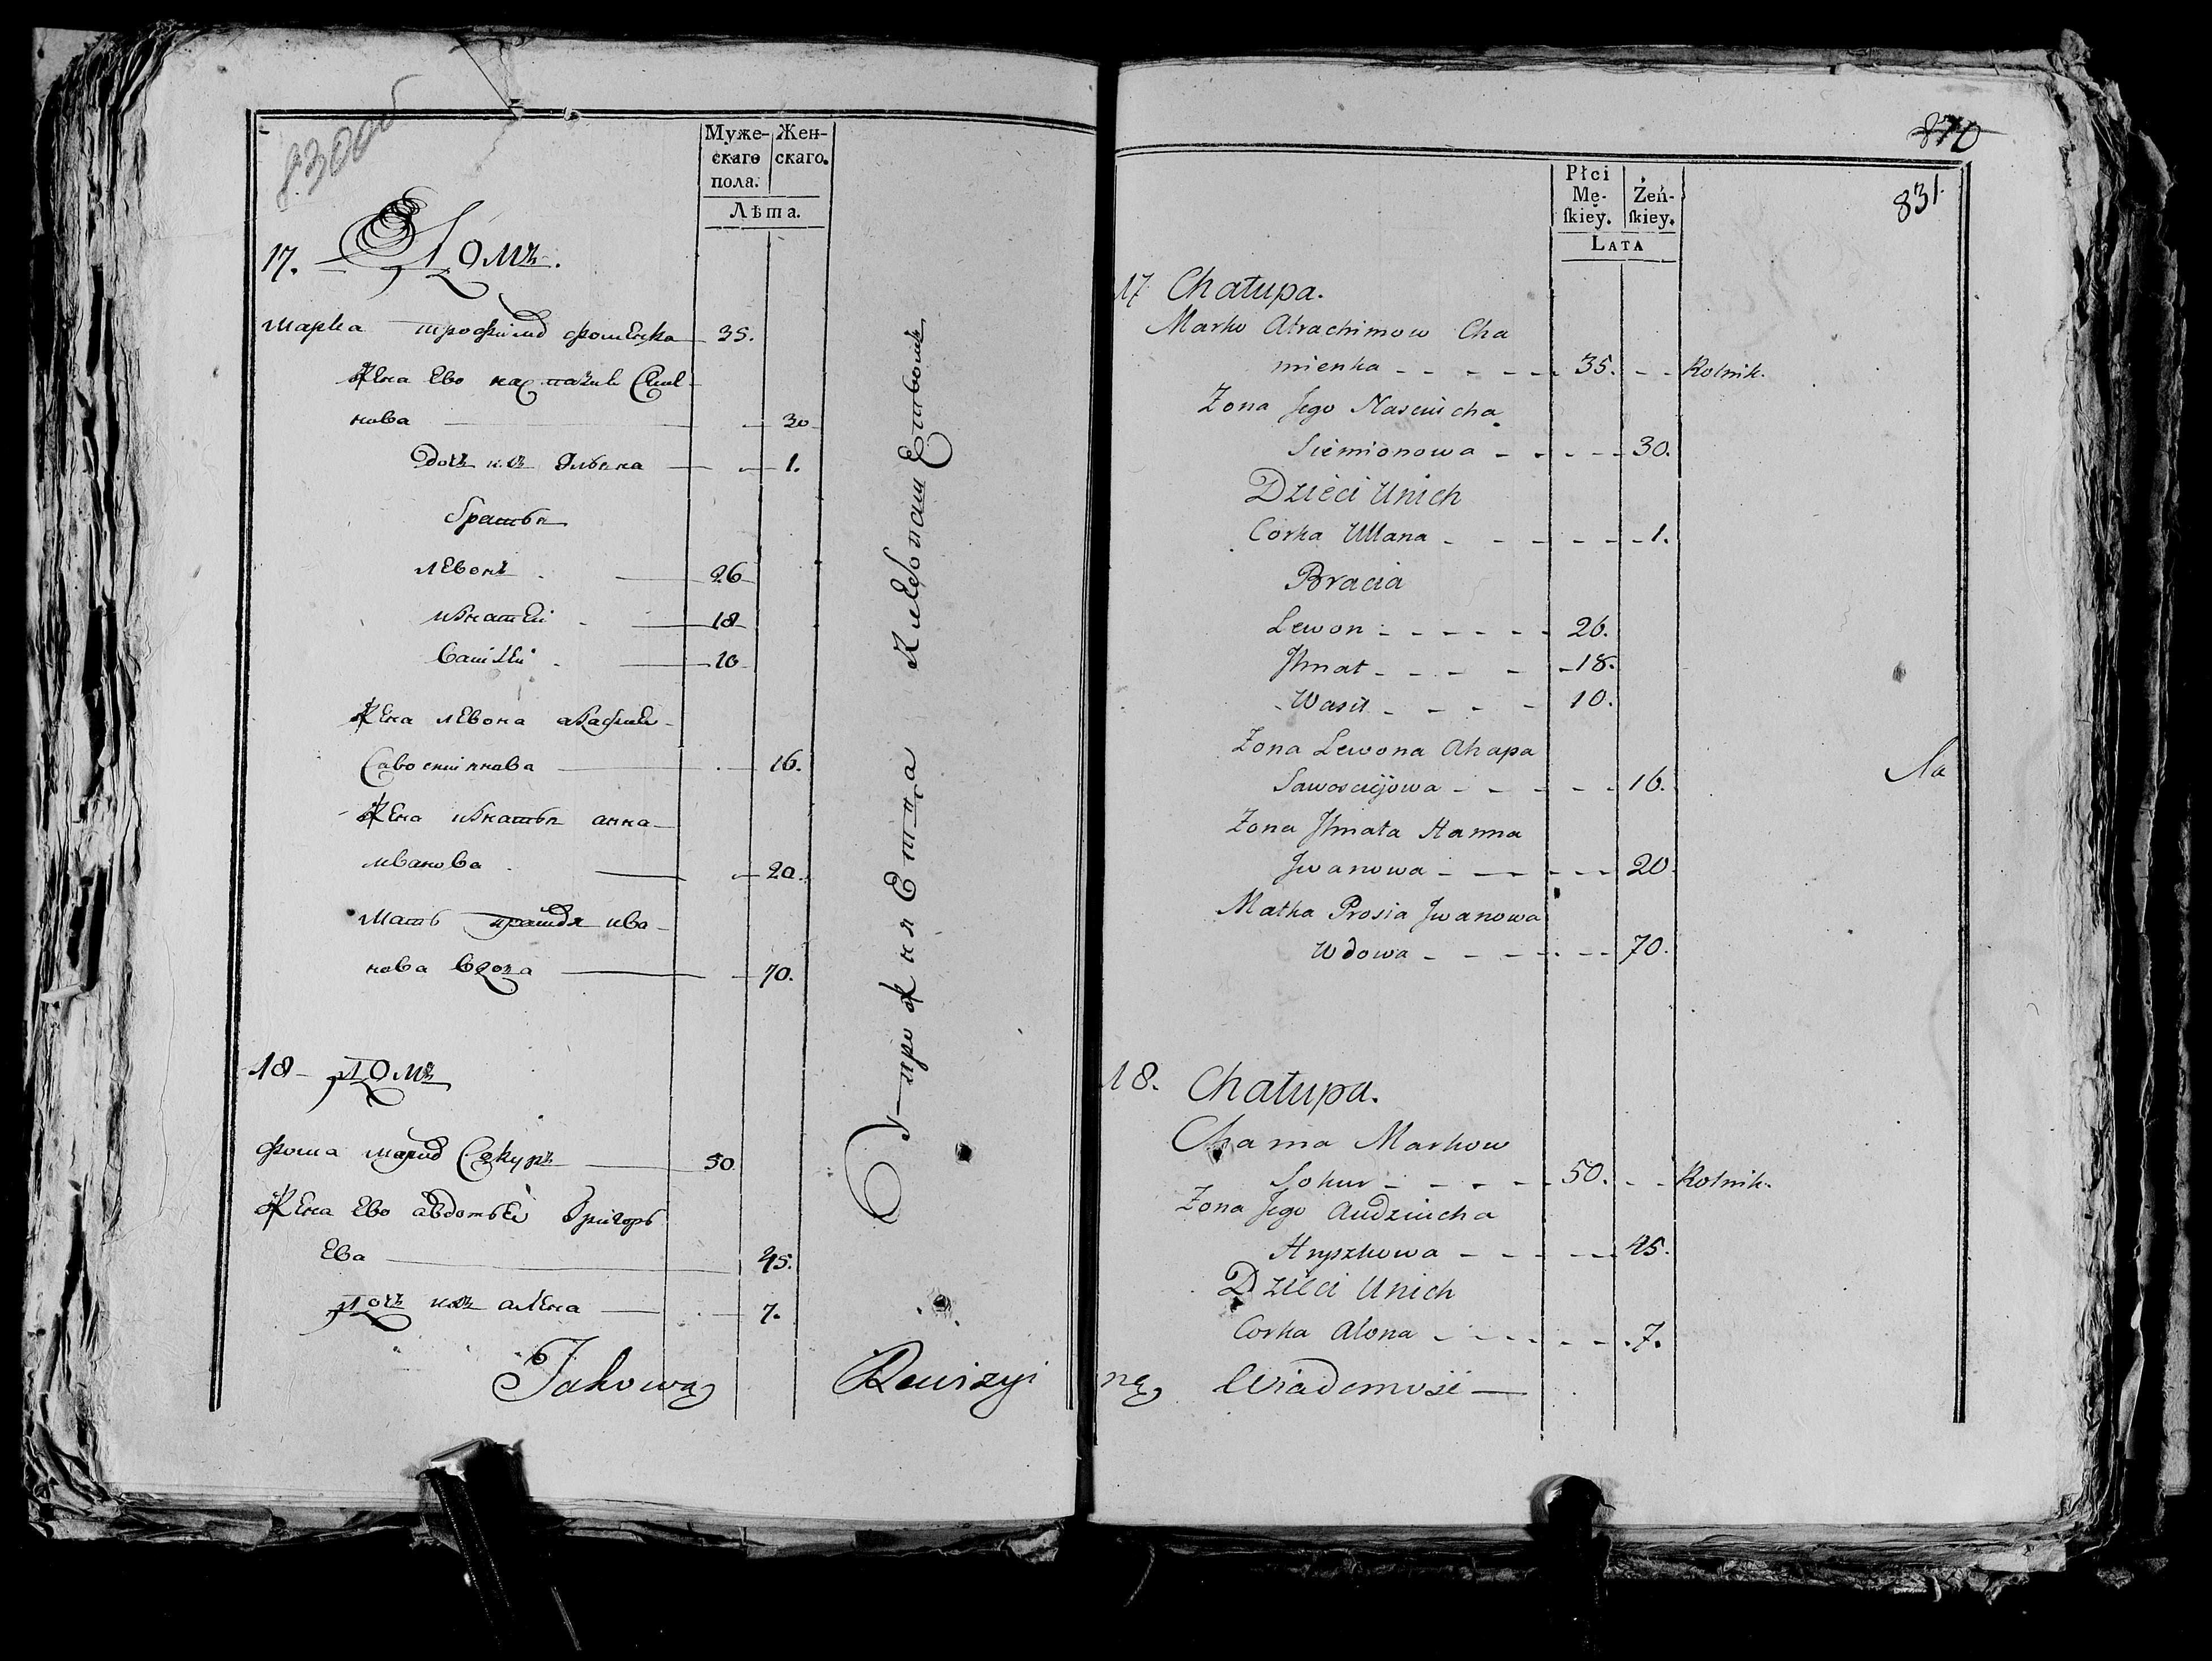 830об
Муже- Жен-
скаго скаго.
пола.
Лѣта.
17. Домъ.
Марка трофимов фоменка 35.
Жена Ево настазиѣ Симе
нова 30
Дочь ихъ Ульяна 1.
братья
левонъ 26
игнатей 18
Василей 10
Жена левона агафия
Савостиянова 16.
Жена игнатья анна
иванова 20.
Мать ива
нова вдова 70.
18 Домъ
фома марков Сокуръ 50
Жена Ево авдотьѣ Григорь
Ева 45.
Дочь ихъ алена 7.
Takową Rewizyi
870
831.
Płci
Mę- Żeń-
skiey. skiey.
LATA
17 Chałupa.
Marko Atrachimow Cha
mienka 35. Rolnik.
Zona Jego Nasciucha
Siemionowa 30.
Dzieci Unich
Corka Ullana 1.
Bracia
Lewon 26.
Jhnat 18.
Wasil 10.
Zona Lewona Ahapa
Sawosciejowa 16.
Zona Jhnata Hanna
Jwanowa 20.
Matka Prosia Jwanowa
Wdowa 70.
18. Chałupa.
Chama Markow
Sokur 50. Rolnik.
Zona Jego Audziucha
Hryszkowa 45.
Dzieci Unich
Corka Alona 7.
ną Wiadomość